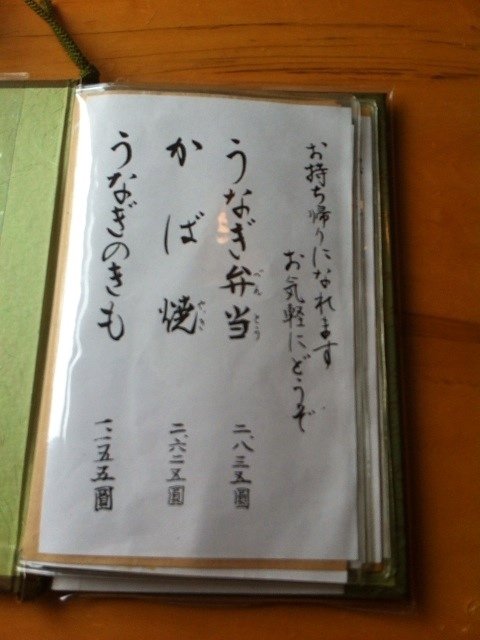 お持ち帰りになれます
お気軽にどうぞ
うなぎ弁当 二、八三五圓
べんとう
かば焼 二、六二五圓
やき
うなぎのきも 一二五五圓